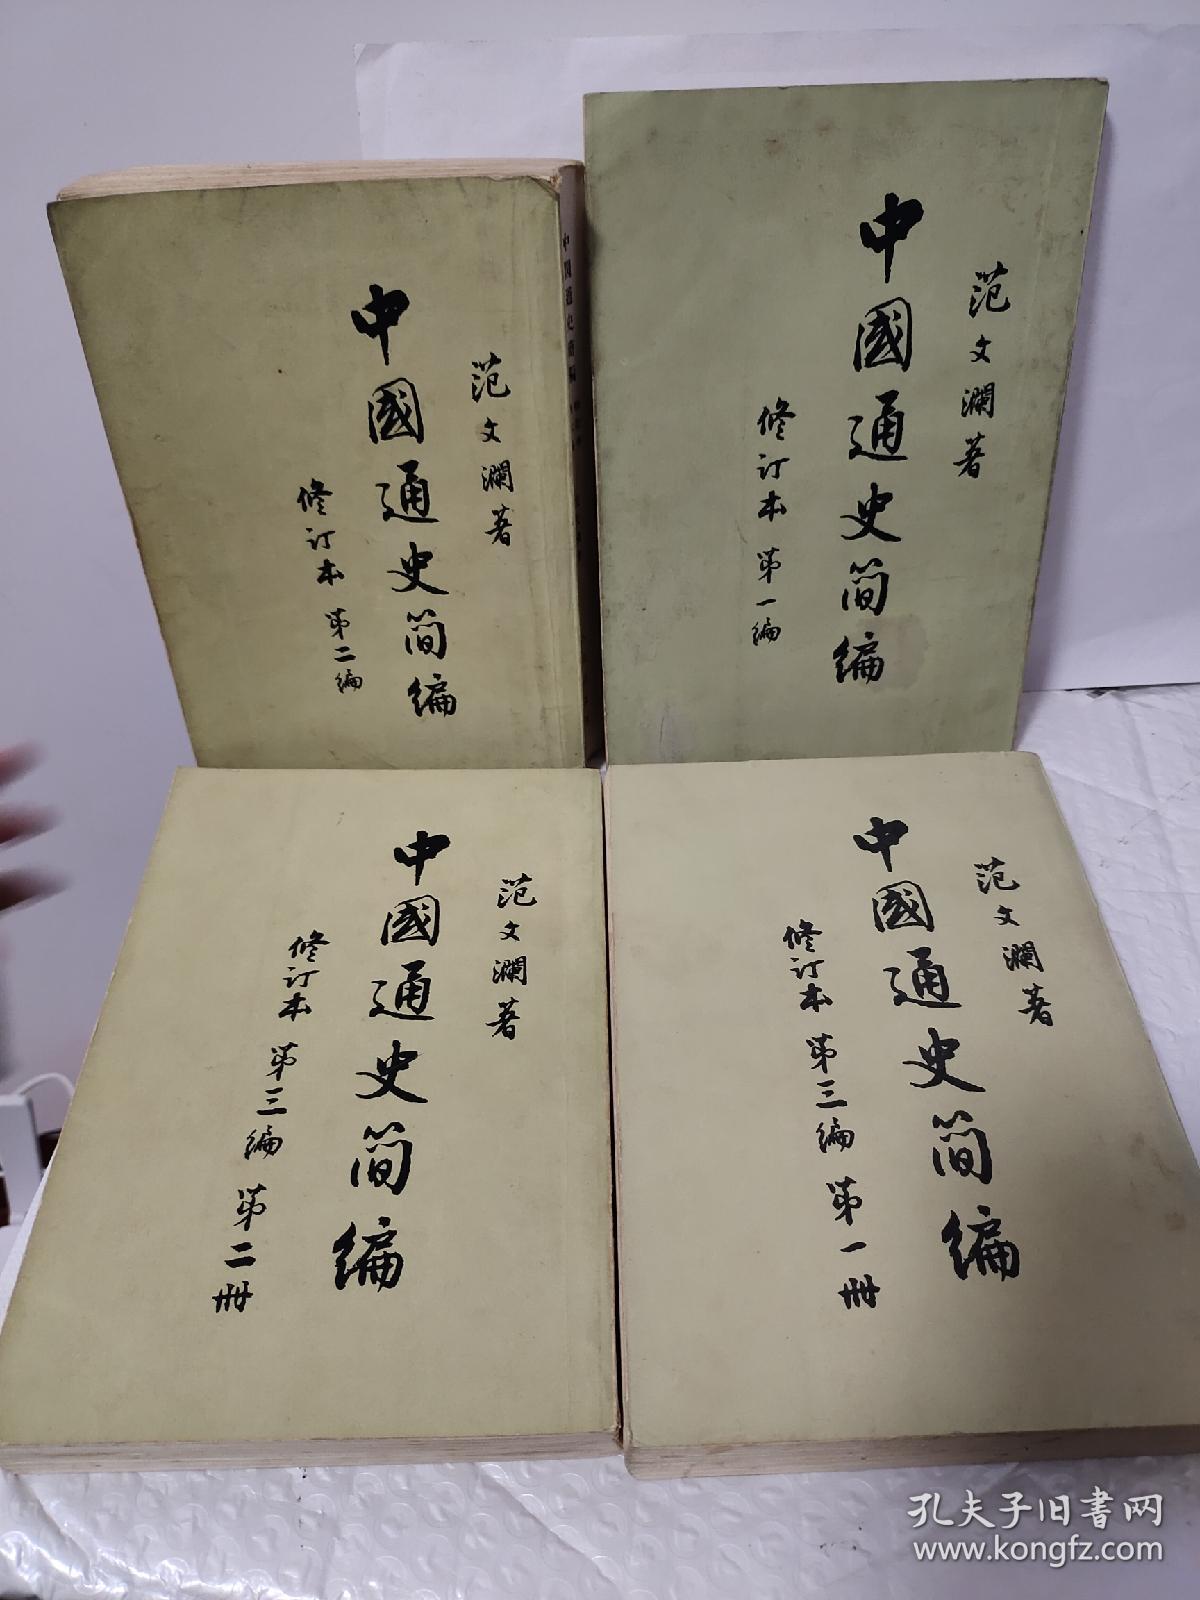 范文瀾著
中國通史简编
修订本 第一编
中國通史簡編
范文瀾著
中國通史简编
修订本 第二编
范文瀾著
中國通史简编
修订本 第三编 第一册
范文瀾著
中國通史简编
修订本 第三编 第二册
孔夫子旧书网
www.kongfz.com